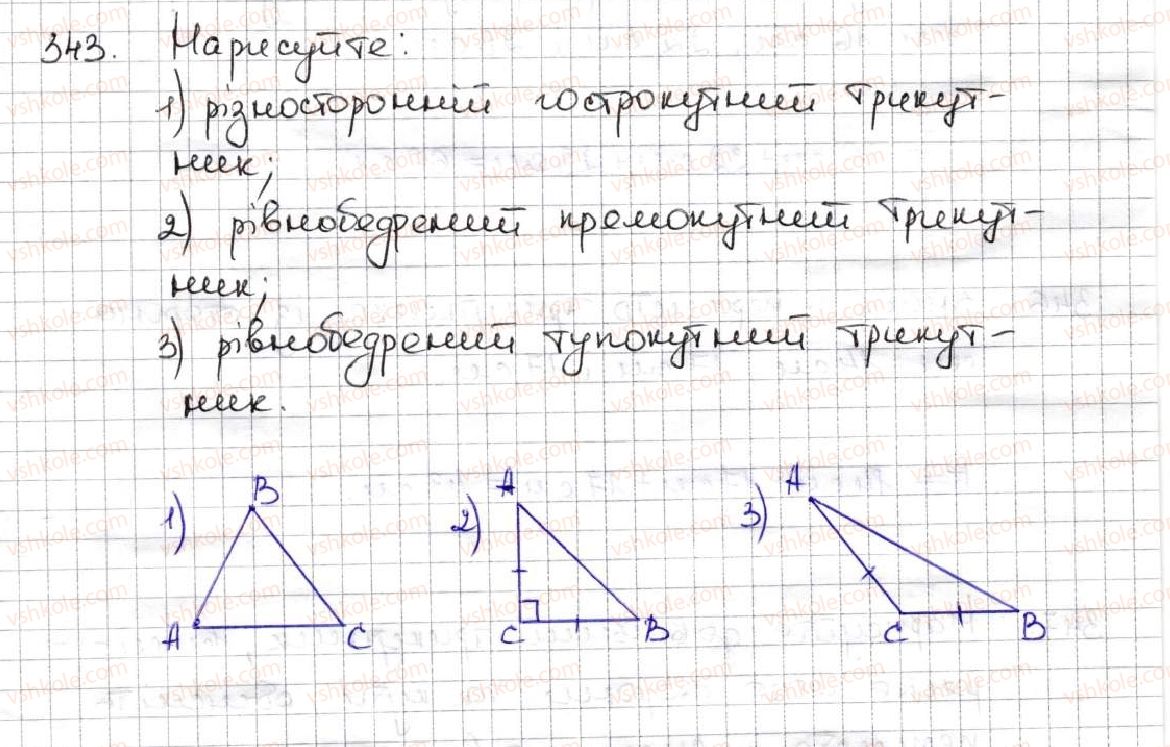 343. Нарисуйте:
1) різносторонній гострокутний трикут-
ник;
2) рівнобедрений прямокутний трикут-
ник;
3) рівнобедрений тупокутний трикут-
ник.
1) B A C
2) A C B
3) A C B
vshkole.com